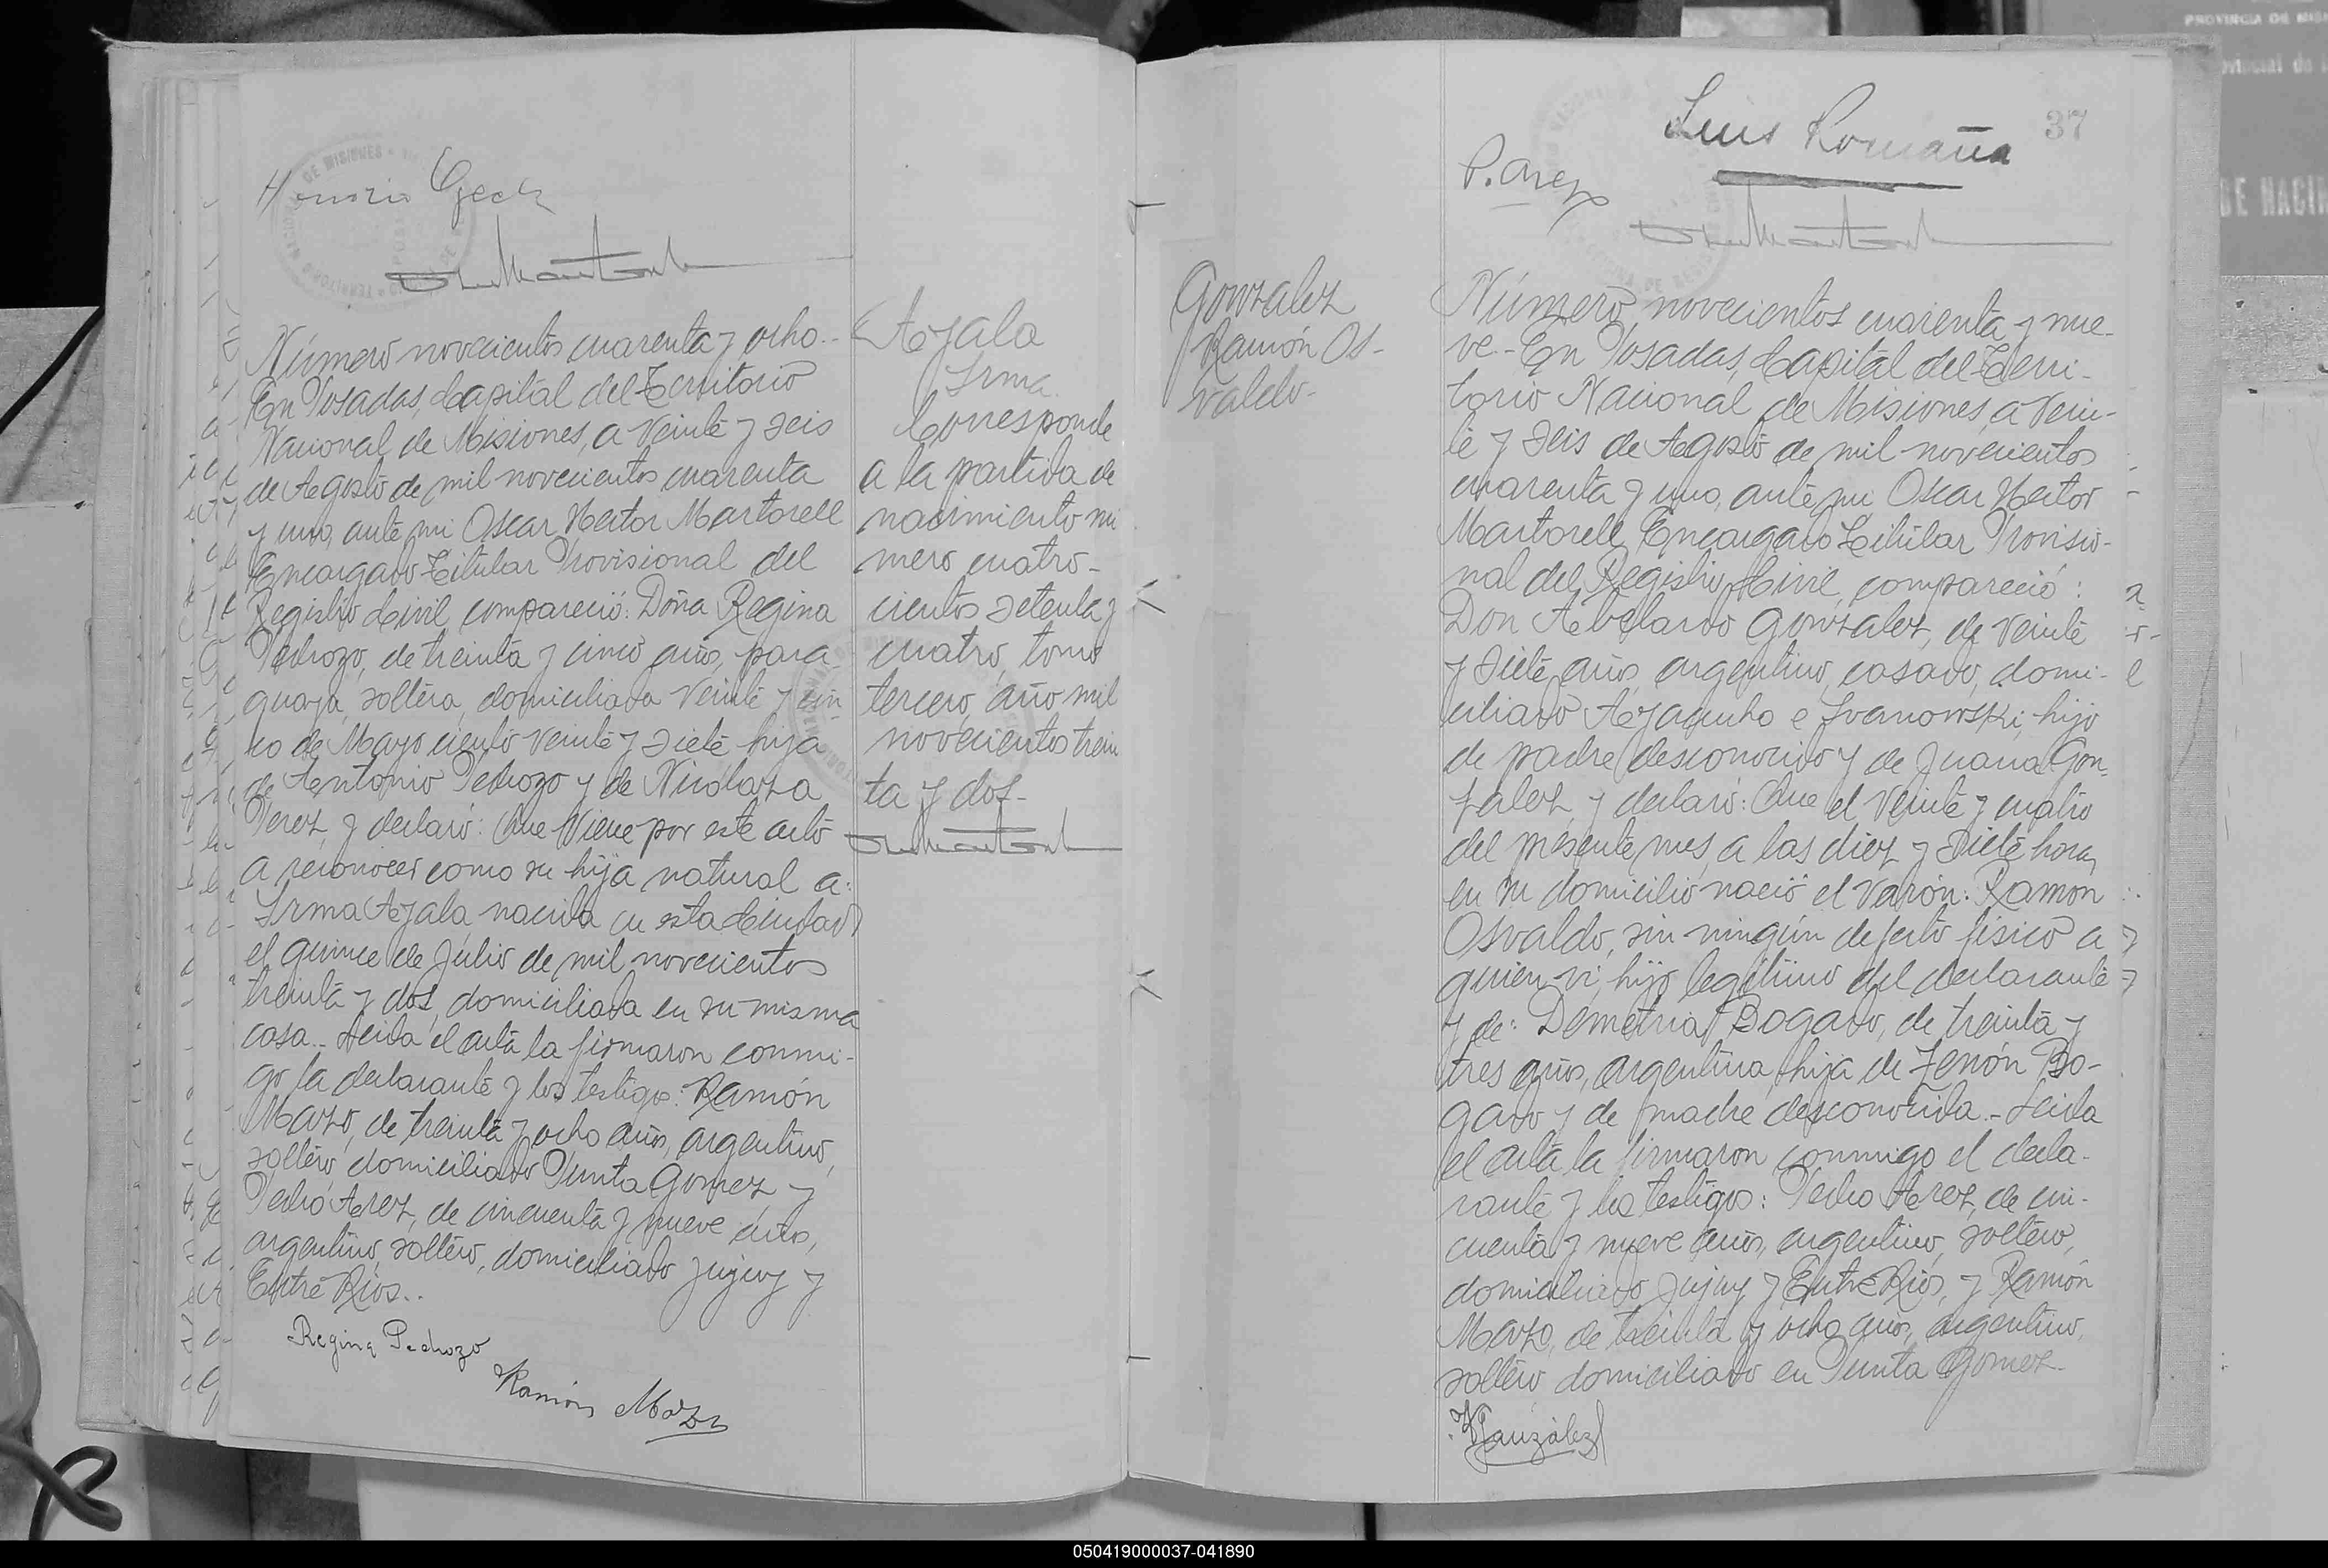 Honorio
Número novecientos cuarenta y ocho.-
En Posadas, Capital del Territorio
Nacional de Misiones, a Veinte y seis
de Agosto de mil novecientos cuarenta
y uno, ante mi Oscar Hector Martorell
Encargado Titular Provisional del
Registro Civil, compareció: Doña Regina
Pedrozo, de treinta y cinco años, para
guaya, soltera, domiciliada Veinte y cin
co de Mayo ciento veinte y siete hija
de Antonio Pedrozo y de Nicolaza
Perez, y declaró: Que Viene por este acto
a reconocer como su hija natural a:
Irma Ayala nacida en esta Ciudad
el quince de Julio de mil novecientos
treinta y dos, domiciliada en su misma
casa.- Leida el acta la firmaron conmi-
go la declarante y los testigos: Ramón
Mazo, de treinta y ocho años, argentino,
soltero, domiciliado Punta Gomez y
Pedro Arez, de cincuenta y nueve años,
argentino, soltero, domiciliado Jujuy y
Entre Rios..
Regina Pedrozo
Ramón Mazo
Ayala
Irma
Corresponde
a la partida de
nacimiento nú
mero cuatro-
cientos setenta y
cuatro, tomo
tercero, año mil
novecientos trein
ta y dos-
Luis Romaña
37
P. Arez
Gonzalez
Ramón Os-
valdo-
Número, novecientos cuarenta y nue-
ve.- En Posadas, Capital del Terri-
torio Nacional de Misiones, a Vein-
te y seis de Agosto de mil novecientos
cuarenta y uno, ante mi Oscar Hector
Martorell, Encargado Titular Provisio-
nal del Registro Civil, compareció:
Don Abelardo Gonzalez, de Veinte
y siete años, argentino, casado, domi-
ciliado Ayacucho e Ivanowski, hijo
de padre desconocido y de Juana Gon-
zalez, y declaró: Que el Veinte y cuatro
del presente mes, a las diez y siete horas,
en su domicilio nació el Varón: Ramon
Osvaldo, sin ningún defecto físico a
quien vi, hijo legítimo del declarante
y de: Demetria Bogado, de treinta y
tres años, argentina, hija de Zenón Bo-
gado y de madre desconocida.- Leida
el acta la firmaron conmigo el decla-
rante y los testigos: Pedro Arez, de cin-
cuenta y nueve años, argentino, soltero,
domiciliado Jujuy y Entre Rios, y Ramón
Mazo, de treinta y ocho años, argentino,
soltero domiciliado en Punta Gomez.
González
PROVINCIA DE MISI
DE NACIM
050419000037-041890